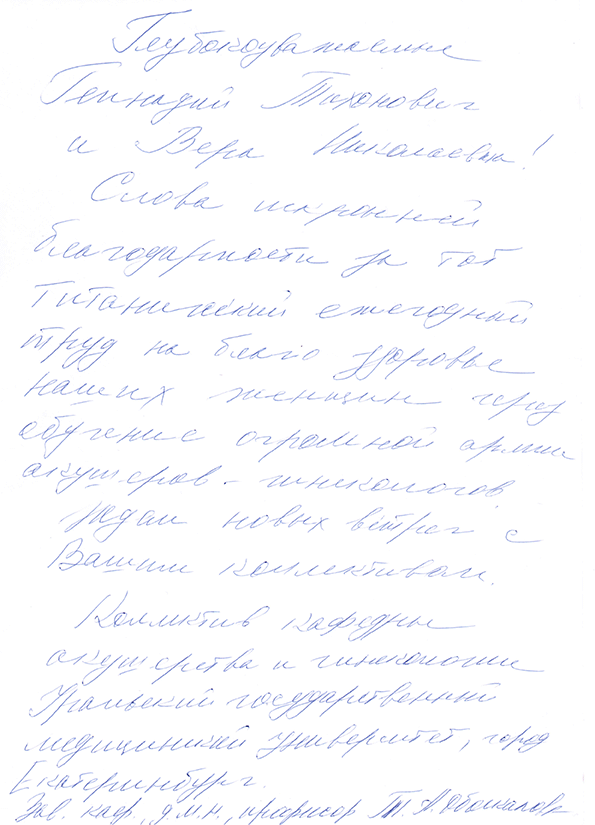 Глубокоуважаемые
Геннадий Тихонович
и Вера Николаевна!
Слова искренней
благодарности за тот
титанический ежегодный
труд на благо здоровье
наших женщин через
обучение огромной армии
акушеров-гинекологов
Ждем новых встреч с
Вашим коллективом.
Коллектив кафедры
акушерства и гинекологии
Уральский государственный
медицинский университет, город
Екатеринбург.
Зав. каф., д.м.н., профессор Т.А. Обоскалова